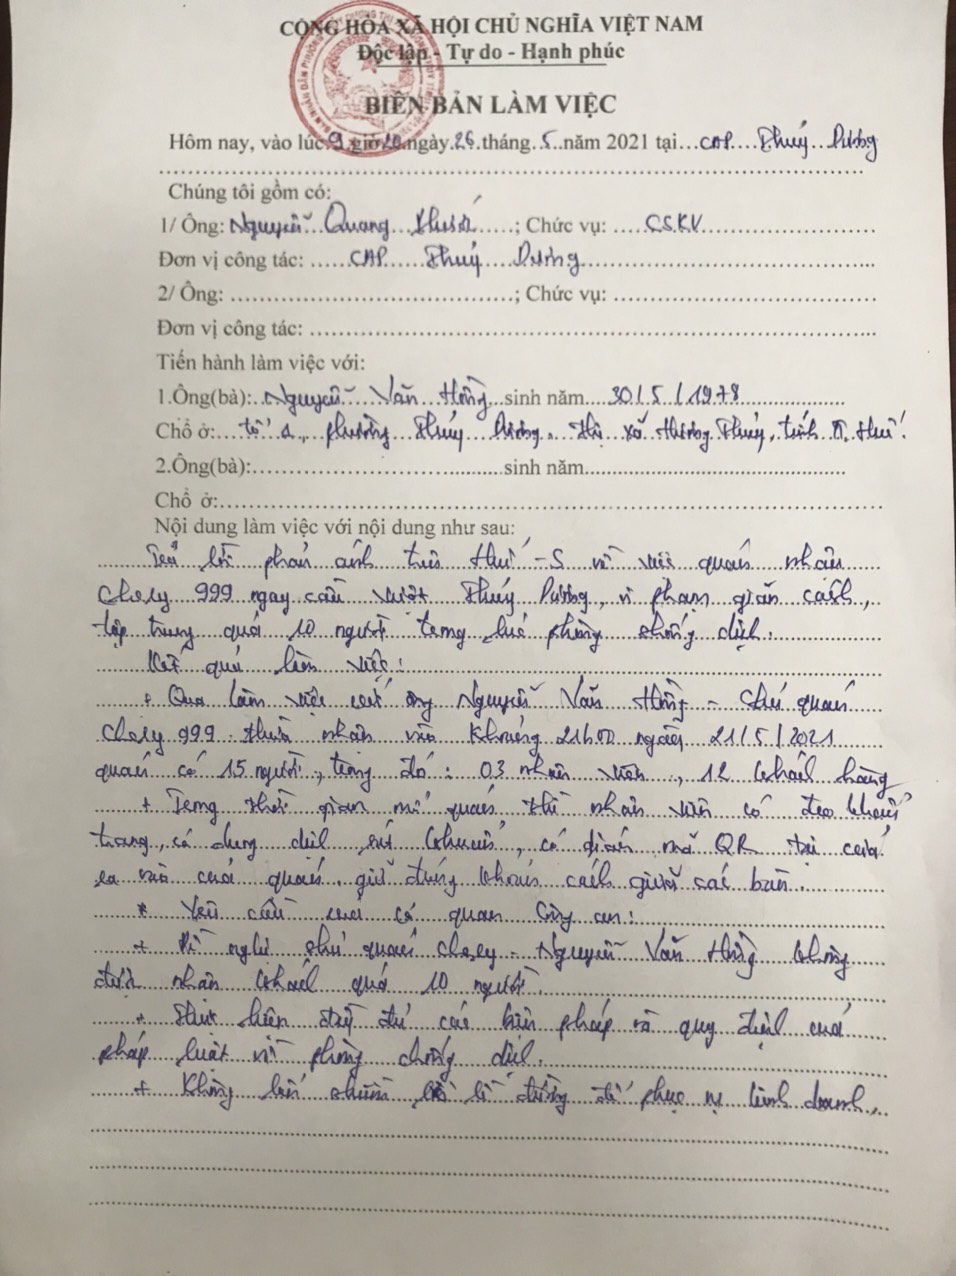 CỘNG HÒA XÃ HỘI CHỦ NGHĨA VIỆT NAM
Độc lập - Tự do - Hạnh phúc
BIÊN BẢN LÀM VIỆC
Hôm nay, vào lúc 9 giờ 20 ngày 26 tháng 5 năm 2021 tại CAP Thủy Dương
Chúng tôi gồm có:
1/ Ông: Nguyễn Quang ; Chức vụ: CSKV
Đơn vị công tác: CAP Thủy Dương
2/ Ông: ; Chức vụ:
Đơn vị công tác:
Tiến hành làm việc với:
1.Ông(bà): Nguyễn Văn Hồng sinh năm 30/5/1978
Chổ ở: tổ 1, phường Thủy Dương, thị xã Hương Thủy, tỉnh TT Huế.
2.Ông(bà): sinh năm
Chổ ở:
Nội dung làm việc với nội dung như sau:
Trả lời phản ánh trên Huế-S về việc quán nhậu
Chery 999 ngay cầu vượt Thủy Dương, vi phạm giãn cách,
tập trung quá 10 người trong lúc phòng chống dịch.
Kết quả làm việc:
+ Qua làm việc với ông Nguyễn Văn Hồng - chủ quán
Chery 999 thừa nhận vào khoảng 21h00 ngày 21/5/2021
quán có 15 người, trong đó: 03 nhân viên, 12 khách hàng
+ Trong thời gian mở quán thì nhân viên có đeo khẩu
trang, có dung dịch sát khuẩn, có dán mã QR tại cửa
ra vào của quán, giữ đúng khoảng cách giữa các bàn.
* Yêu cầu của cơ quan Công an:
+ Đề nghị chủ quán chery - Nguyễn Văn Hồng không
được nhận khách quá 10 người.
+ Thực hiện đầy đủ các biện pháp và quy định của
pháp luật về phòng chống dịch.
+ Không lấn chiếm lề đường để phục vụ kinh doanh.